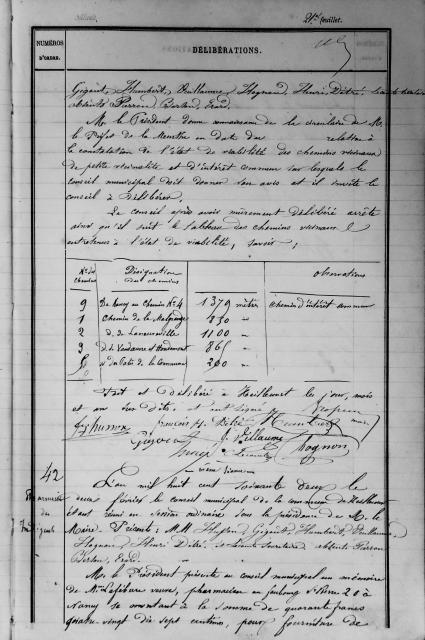 21e feuillet.
NUMÉROS D'ORDRE.
DÉLIBÉRATIONS.
Gigout, Humbert, Vuillaume, Hognon, Henri, Détré,
absents Pierron, Bertin, Evard.
Mr le Président donne connaissance de la circulaire de Mr
le Préfet de la Meurthe en date du relative à
la constatation de l'état de viabilité des chemins vicinaux
de petite vicinalité et d'intérêt commun sur lesquels le
conseil municipal doit donner son avis et il invite le
conseil à délibérer.
Le conseil après avoir mûrement délibéré arrête
ainsi qu'il suit le tableau des chemins vicinaux
entretenus à l'état de viabilité, savoir :
Nos des chemins
Désignation des chemins
observations
9 De Nancy au Chemin No 4 1379 mètres chemin d'intérêt commun
1 Chemin de la Malgrange 250 "
2 d. de Laneuveville 1100 "
3 d. de Vandœuvre et Houdemont 865 "
5 de la Commune 200 "
Fait et délibéré à Heillecourt les jour, mois
et an susdits et ont signé
François Détré
Humbert
Vuillaume
Hognon
42
L'an mil huit cent soixante deux le
deux février le conseil municipal de la commune de Heillecourt
étant réuni en session ordinaire sous la présidence de Mr le
Maire. Présents : MM. Gigout, Humbert, Vuillaume,
Hognon, Henri, Détré, secrétaire absents Pierron
Bertin, Evard.
Mr le Président présente au conseil municipal un mémoire
de Mme Lefebvre veuve, pharmacien au faubourg St Pierre 20 à
Nancy se montant à la somme de quarante francs
quatre vingt dix sept centimes, pour fourniture de